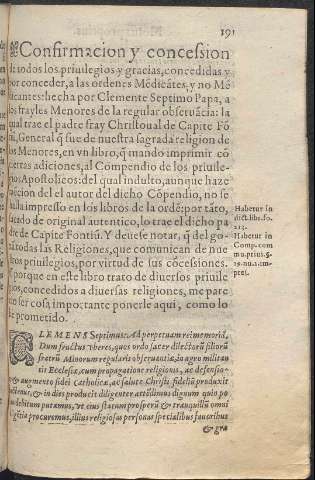 191
Confirmacion y concession
de todos los priuilegios y gracias, concedidas y
por conceder, a las ordenes Mēdicātes, y no Mē
dicantes: hecha por Clemente Septimo Papa, a
los frayles Menores de la regular obseruācia: la
qual trae el padre fray Christoual de Capite Fō
tiū, General q̄ fue de nuestra sagrada religion de
los Menores, en vn libro, q̄ mando imprimir cō
ciertas adiciones, al Compendio de los priuile-
gios Apostolicos: del qual indulto, aunque haze
mēcion del el autor del dicho Cōpendio, no se
halla impresso en los libros de la ordē: por tāto,
sacado de original autentico, lo trae el dicho pa
dre de Capite Fontiū. Y deuese notar, q̄ del go-
zā todas las Religiones, que comunican de nue
stros priuilegios, por virtud de sus cōcessiones.
Y porque en este libro trato de diuersos priuile
gios, concedidos a diuersas religiones, me pare-
ce ser cosa importante ponerle aqui, como lo
he prometido.
Habetur in
dict. libr. fo.
213.
Habetur in
Comp. com
mu. priui. §.
CLEMENS Septimus: Ad perpetuam rei memoriā,
Dum fructus vberes, quos ordo sacer dilectorū filiorū
fratrū Minorum regularis obseruantiæ, in agro militan
tis Ecclesiæ, cum propagatione religionis, ac defensio-
ne & augmento fidei Catholicæ, ac salute Christi fideliū produxit
hactenus, & in dies producit diligenter attēdimus dignum quin po
tius debitum putamus, vt eius statum prosperū & tranquillū omni
diligētia procuremus, illius religiosas personas specialibus fauoribus
& gra